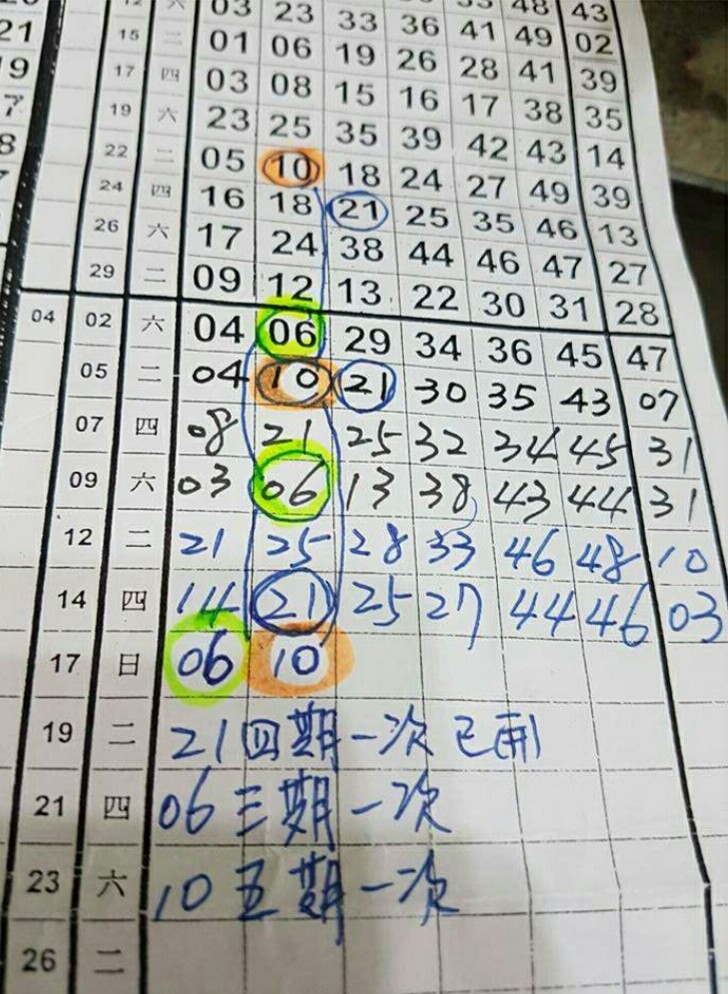 六 03 23 33 36 48 43
21 15 二 01 06 19 26 41 49 02
9 17 四 03 08 15 16 28 41 39
7 19 六 23 25 35 39 17 38 35
8 22 二 05 10 18 24 42 43 14
24 四 16 18 21 25 27 49 39
26 六 17 24 38 44 35 46 13
29 二 09 12 13 22 46 47 27
04 02 六 04 06 29 34 30 31 28
36 45 47
05 二 04 10 21 30 35 43 07
07 四 08 21 25 32 34 45 31
09 六 03 06 13 38 43 44 31
12 二 21 25 28 33 46 48 10
14 四 14 21 25 27 44 46 03
17 日 06 10
19 二 21四期一次已開
21 四 06三期一次
23 六 10五期一次
26 二